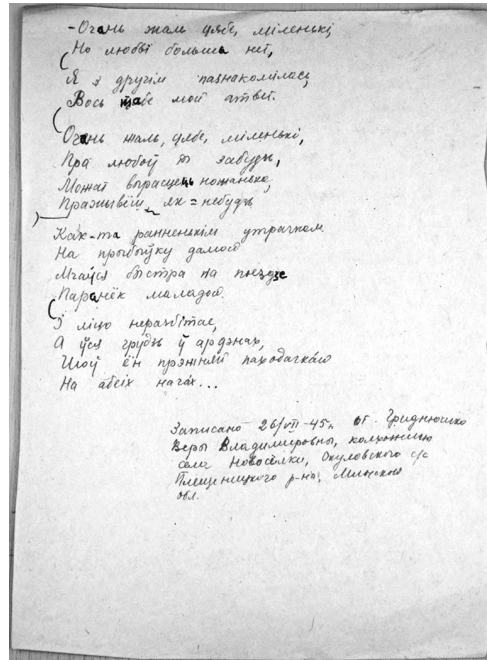 - Очань жаль цябе, міленькі,
Но любві больша нет,
Я з другім пазнакомілась,
Вось табе мой атвет.
Очань жаль, цябе, міленькі,
Пра любоў ты забудзь,
Можат вырасцець ножанька,
Пражывёш як-небудзь
Как-та ранненькім утрачком
На прыбыўку дамой
Мчаўся быстра на поездзе
Паранёк маладой.
І ліцо неразбітае,
А ўся грудзь ў ардэнах,
Шоў ён прэжняй паходачкай
На абеіх нагах...
Записано 26/VII-45 г. от Гриднюшко
Веры Владимировны, колхозницы
села Новосёлки, Окуловского с/с
Плещеницкого р-на, Минской
обл.